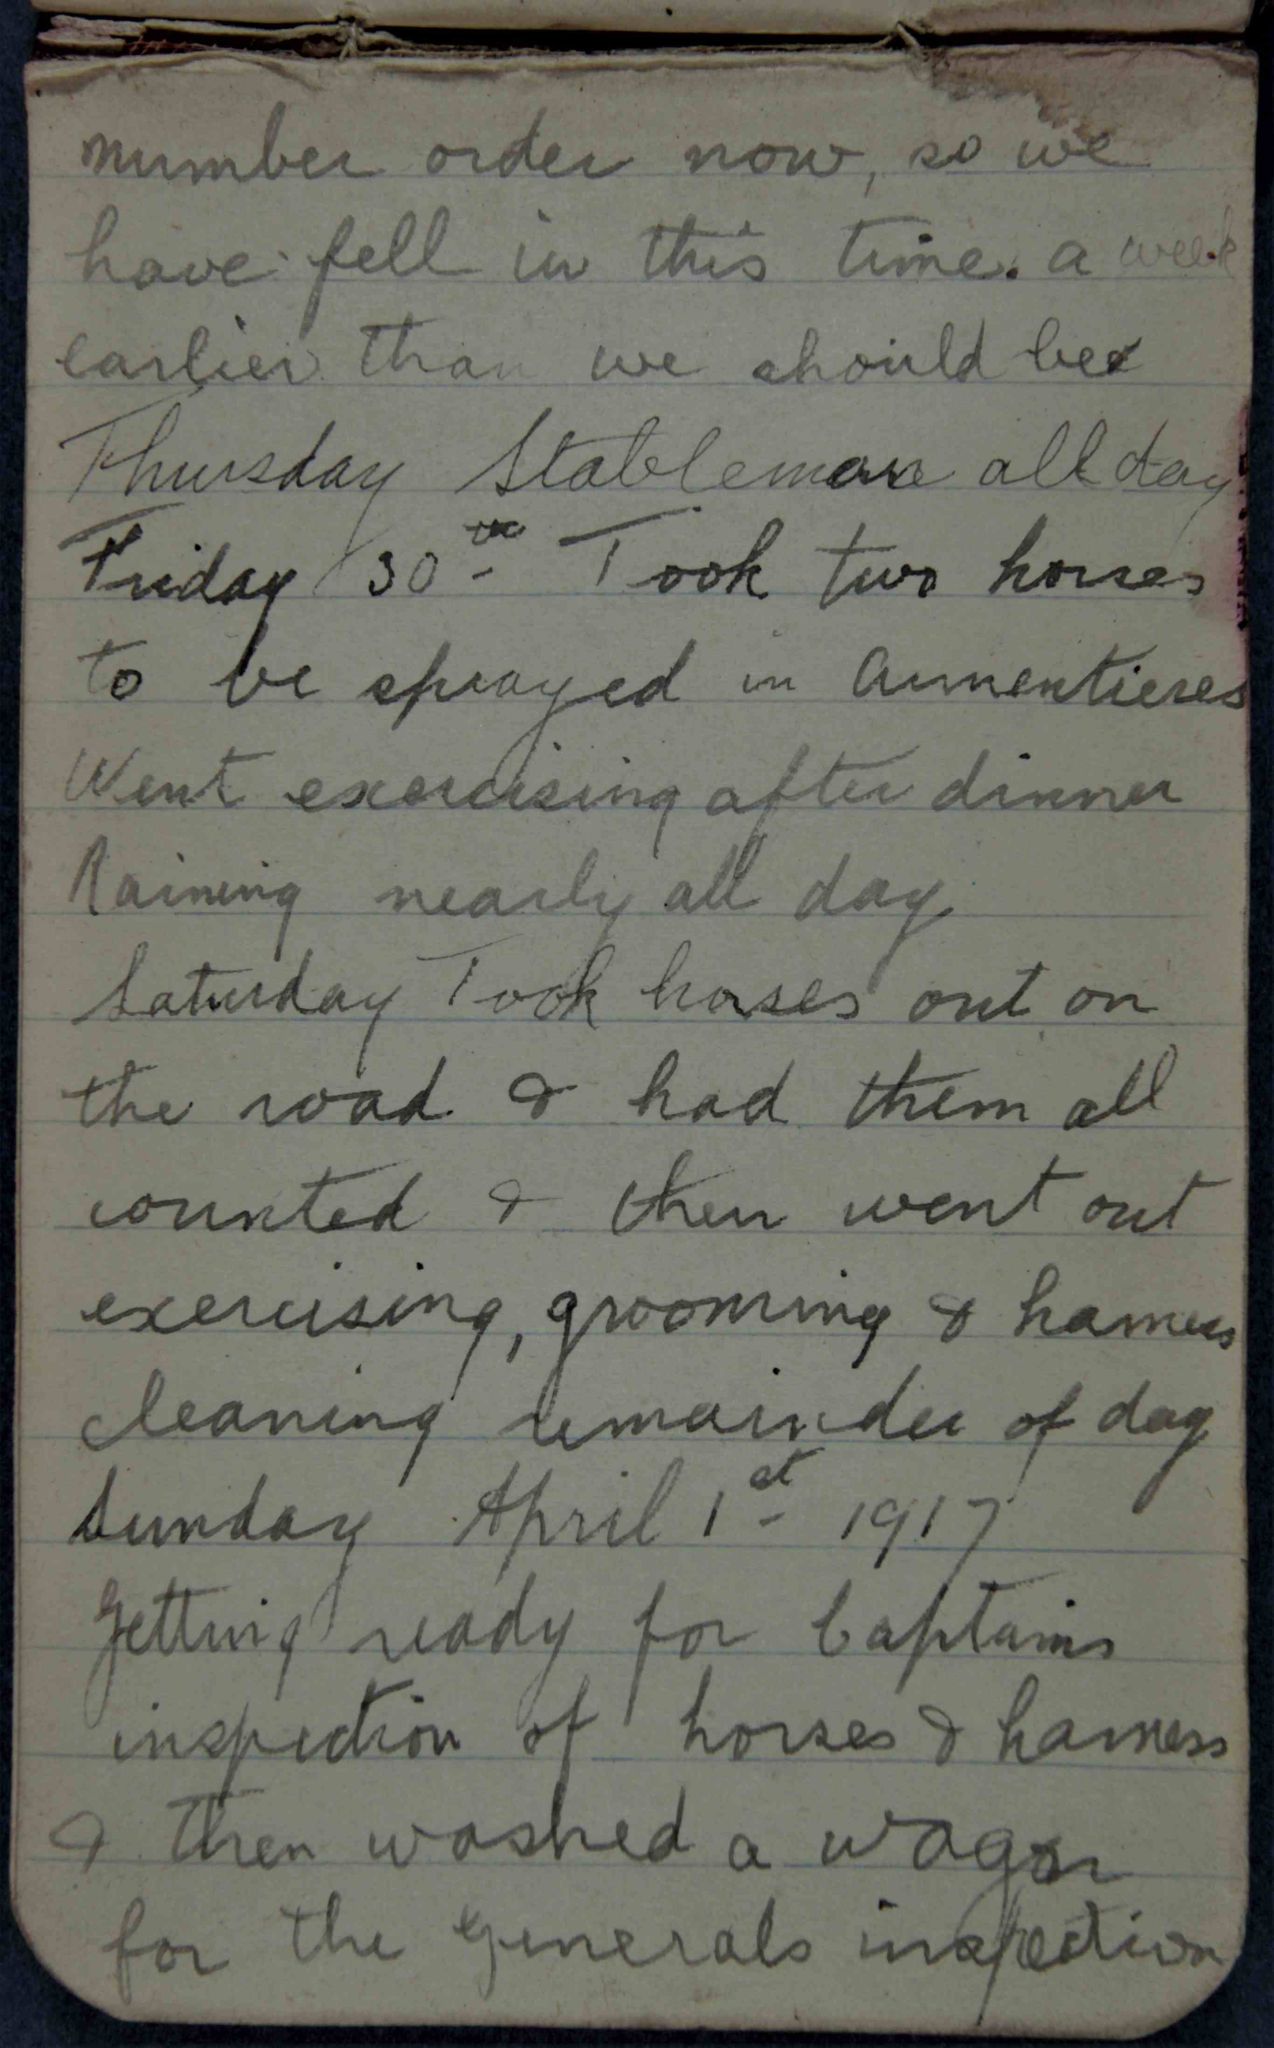 number order now, so we
have fell in this time. a week
earlier than we should be
Thursday Stableman all day
Friday 30th Took two horses
to be sprayed in Armentieres
Went exercising after dinner
Raining nearly all day
Saturday Took horses out on
the road & had them all
counted & then went out
exercising, grooming & harness
cleaning remainder of day
Sunday April 1st 1917
Getting ready for Captains
inspection of horses & harness
& then washed a wagon
for the Generals inspection